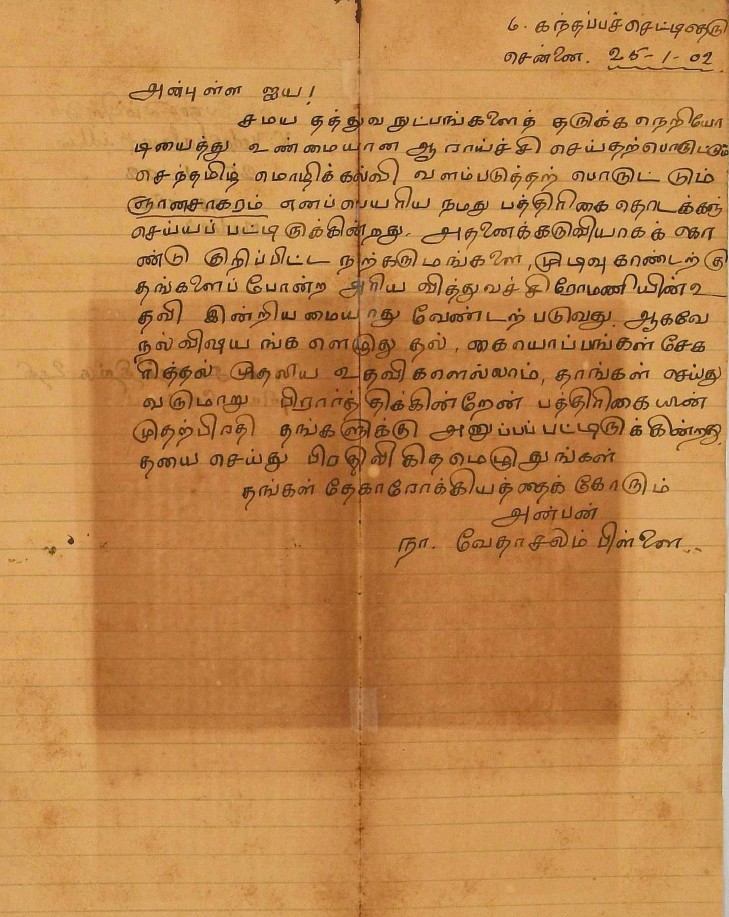 ௬. கந்தப்பச்செட்டிதெரு
சென்னை. 25-1-02
அன்புள்ள ஐய!
சமய தத்துவ நுட்பங்களைத் தருக்க நெறியோ
டியைத்து உண்மையான ஆராய்ச்சி செய்தற்பொருட்டும்
செந்தமிழ் மொழிக்கல்வி வளம்படுத்தற் பொருட்டும்
ஞானசாகரம் எனப்பெயரிய நமது பத்திரிகை தொடக்கஞ்
செய்யப் பட்டிருக்கின்றது. அதனைக்கருவியாகக் கொ
ண்டு குறிப்பிட்ட நற்கருமங்களை, முடிவு காண்டற்கு
தங்களைப் போன்ற அரிய வித்துவச் சிரோமணியின் உ
தவி இன்றியமையாது வேண்டற் படுவது. ஆகவே
நல்விஷயங்க ளெழுதுதல், கையொப்பங்கள் சேக
ரித்தல் முதலிய உதவிகளெல்லாம், தாங்கள் செய்து
வருமாறு பிரார்த்திக்கின்றேன் பத்திரிகையின்
முதற்பிரதி தங்களுக்கு அனுப்பப்பட்டிருக்கின்றது.
தயை செய்து பிரதிலிகிதமெழுதுங்கள்
தங்கள் தேகாரோக்கியத்தைக் கோரும்
அன்பன்
நா. வேதாசலம் பிள்ளை.